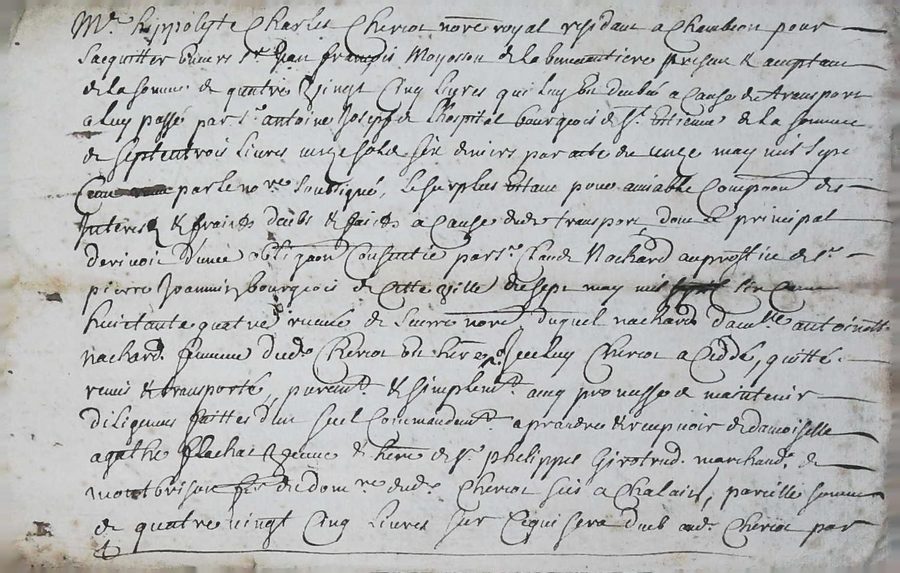 Me hippolyte Charles Cheriot nore royal residant a Chambeon pour
sacquitter envers sr Jean françois Moyosson de la bonnautiere present & acceptant
de la somme de quatre vingt Cinq livres qui luy est deube a cause de transport
a luy passé par sr antoine Joseph de Lhospital bourgeois de st Etienne de la somme
de septentrois livres unze sols six deniers par acte du unze may mil sept
Cens par le nore soubsigné, le surplus estant pour amiable Compoon des
Interes & fraids deubs & faids a cause dudt transport, dont le principal
derivoit d'unne obligaon Consentie par sr Claude Nachard au proffit de sr
pierre Joannin bourgeois de Cette ville du sept may mil six Cens
huictante quatre receue de nore duquel nachard damlle antoinette
nachard femme dudt Cheriot est here Icelluy Cheriot a Cedde, quitté
remis & transporté, purement & simplemt. avec promesse de maintenir
diligences faittes d'un seul Commandemt. a prandre & recepvoir de damoiselle
agathe flachat veuve & here de sr phelippes Girotrud. marchand. de
montbrison dudt Cheriot sis a Chalain, pareille somme
de quatre vingt Cinq livres sur Cequi sera deub audt Cheriot par